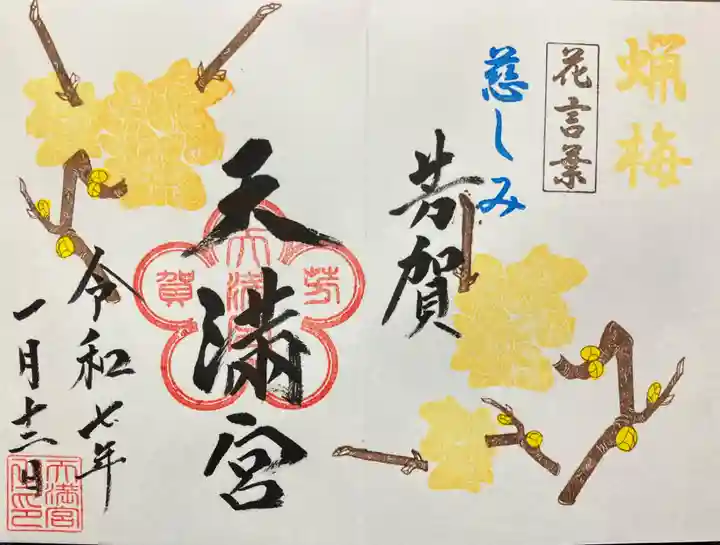 蝋梅
花言葉
慈しみ
芳賀
天満宮
芳賀
天満宮
令和七年
一月十二日
天満宮